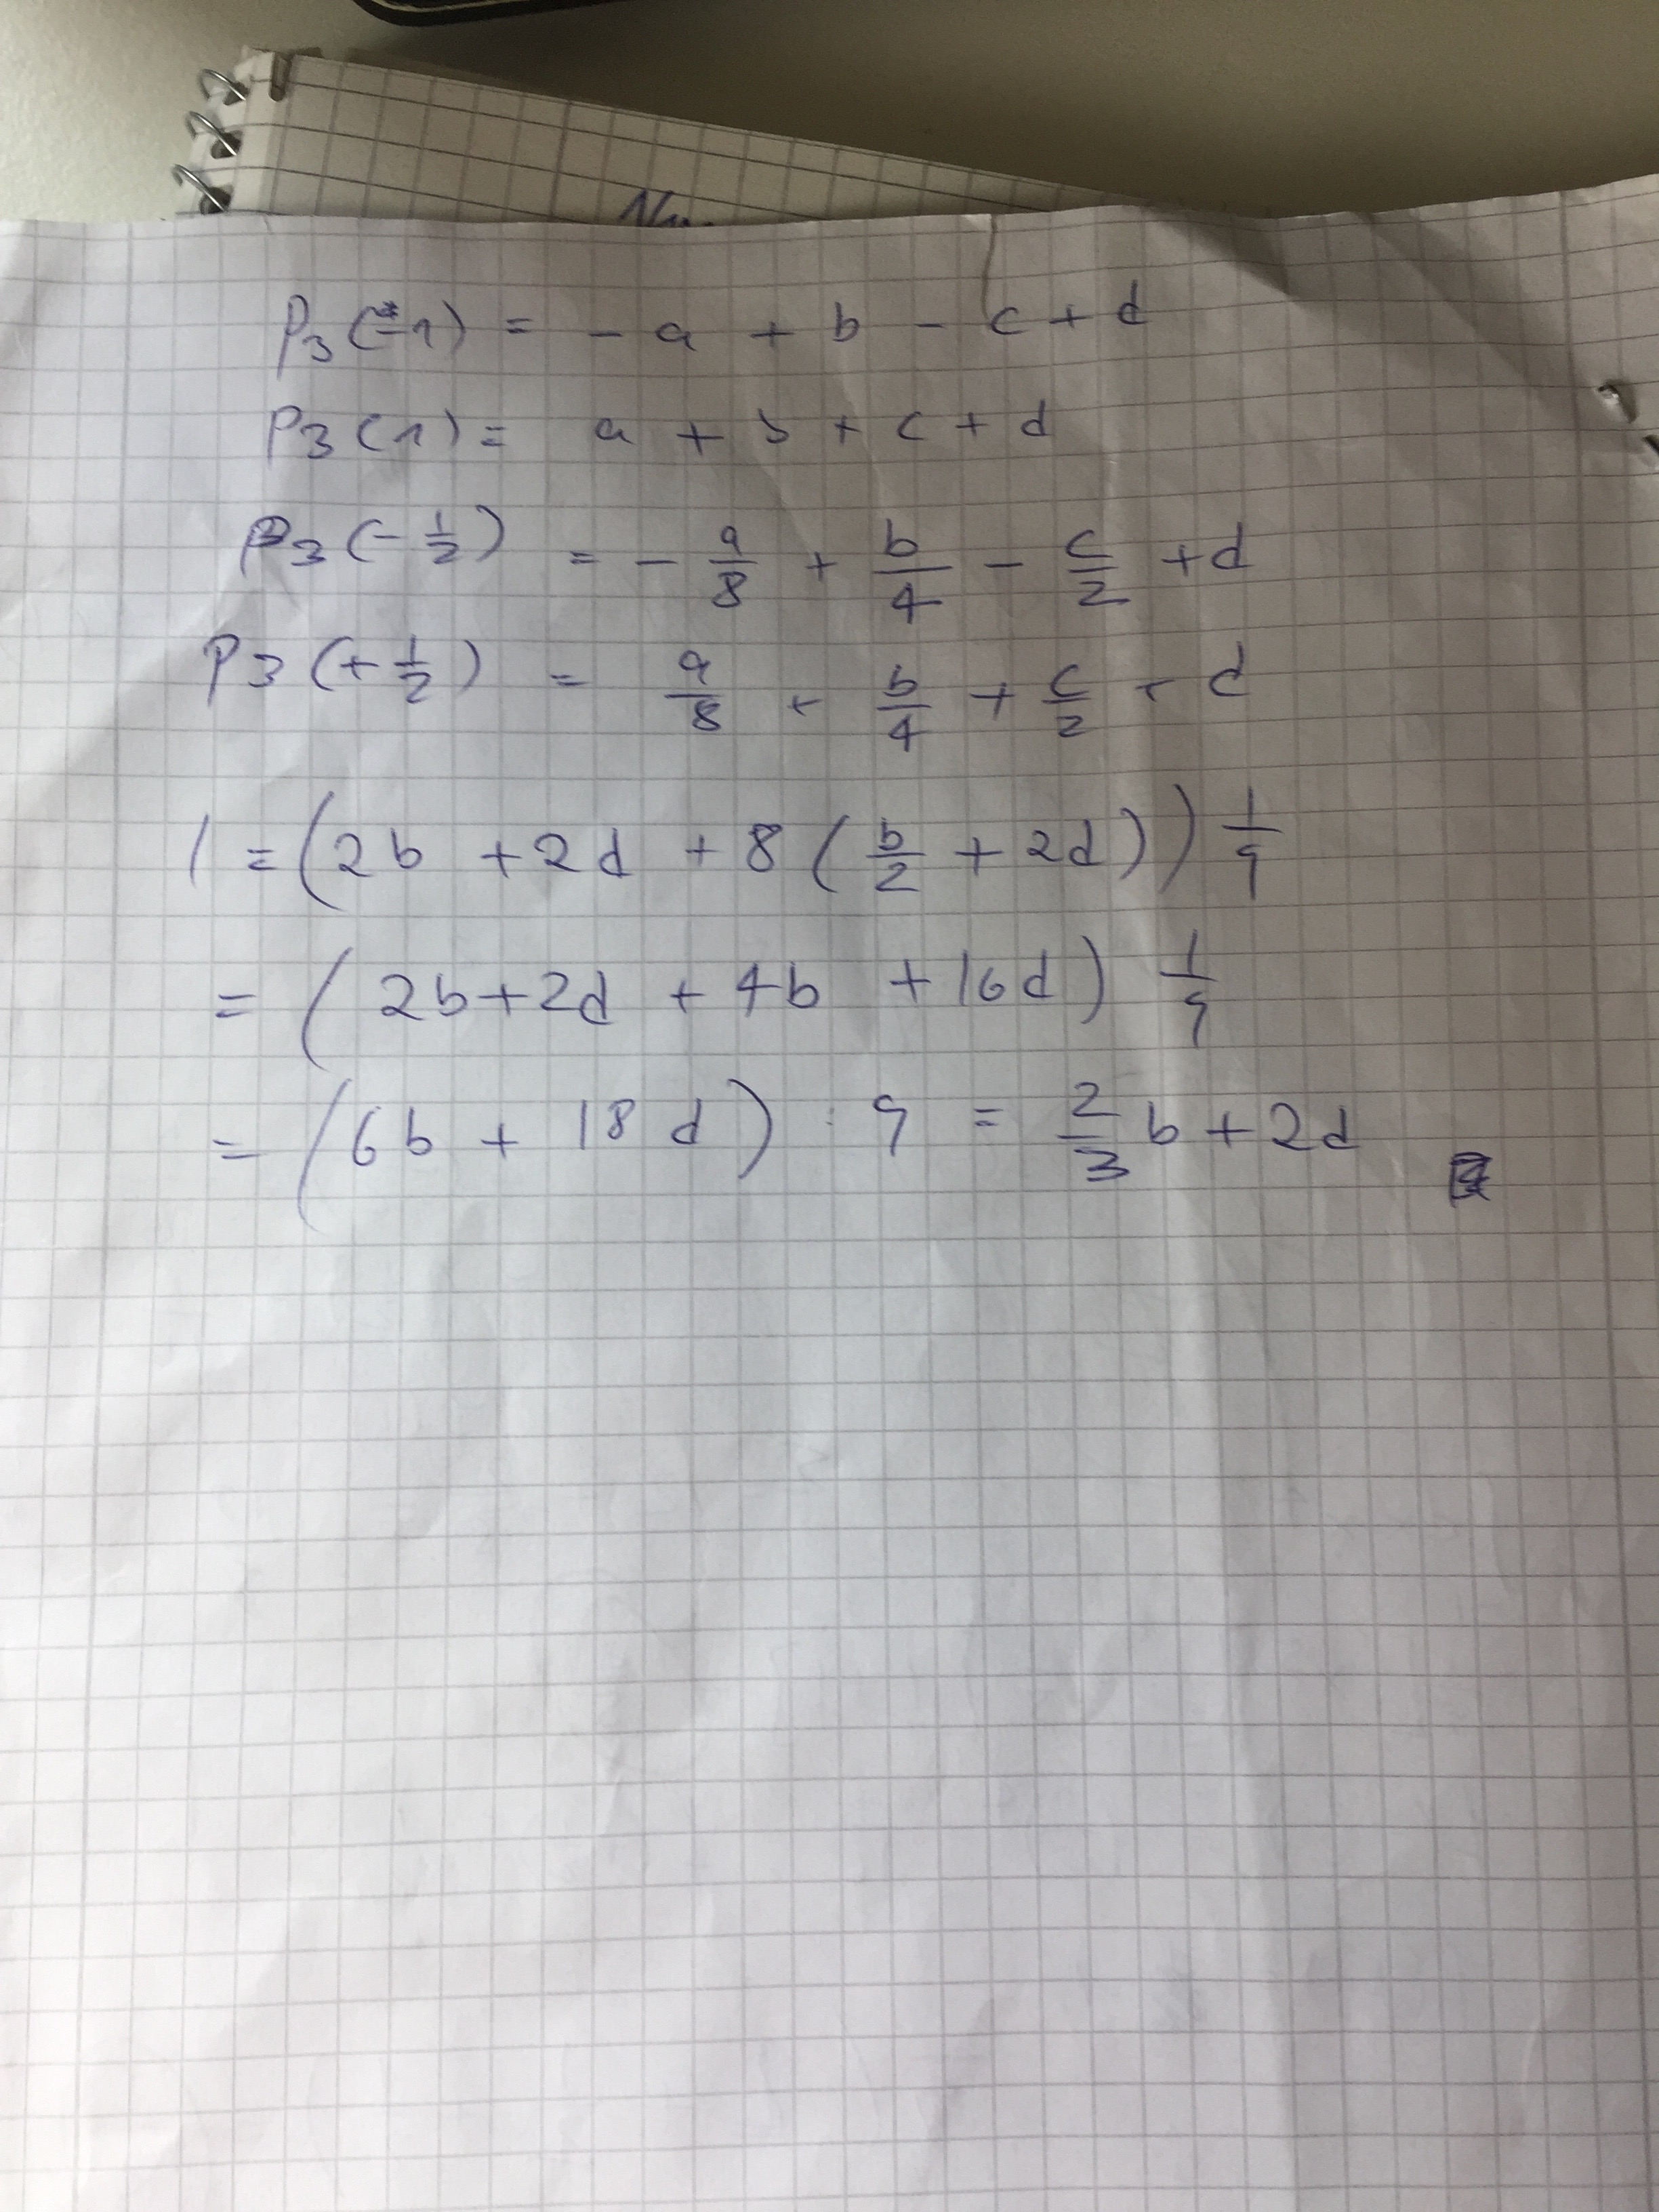 P3(-1) = - a + b - c + d
P3(1) = a + b + c + d
P3(- 1/2) = - a/8 + b/4 - c/2 + d
P3(+ 1/2) = a/8 + b/4 + c/2 + d
1 = (2b + 2d + 8 (b/2 + 2d)) 1/9
= (2b + 2d + 4b + 16d) 1/9
= (6b + 18d) : 9 = 2/3 b + 2d